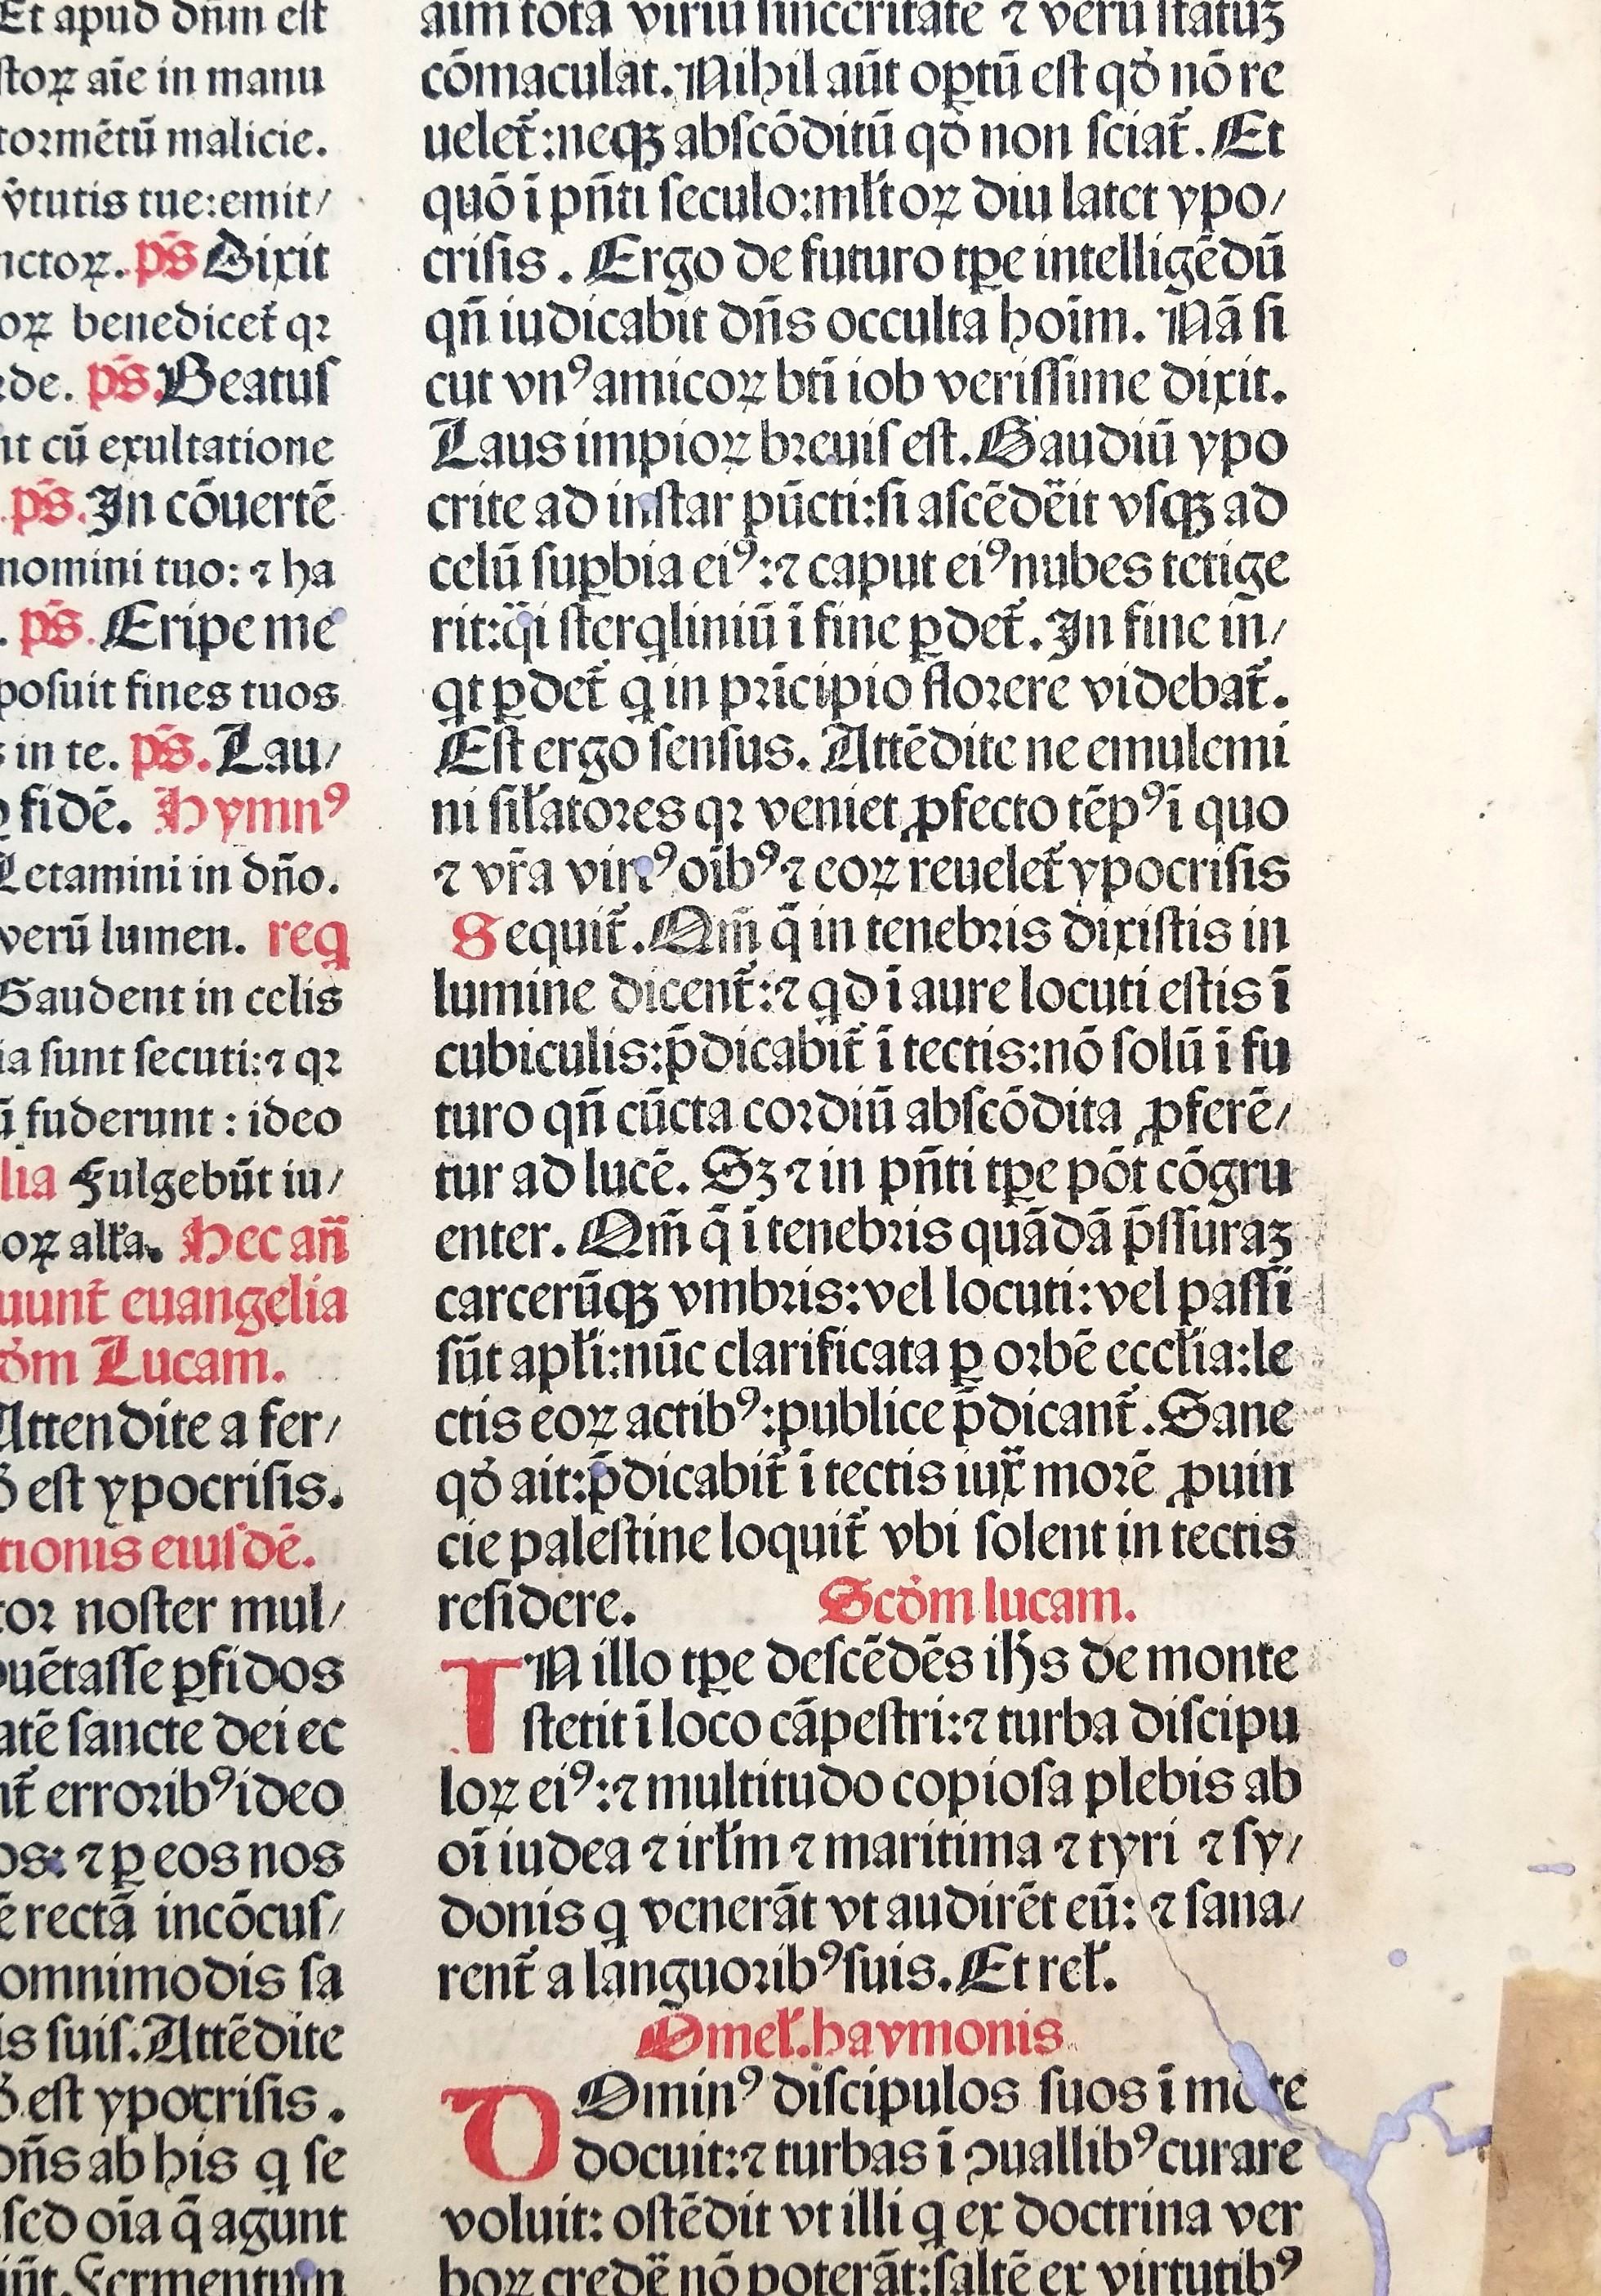 Et apud dñm est
stoꝝ aīe in manu
tormētū malicie.
v̾tutis tue:emit/
nctoꝝ. ps̄ Dixit
oꝝ benedicet᷑ qꝛ
de. ps̄. Beatus
nt cū exultatione
. ps̄. In cōuertē
nomini tuo: ⁊ ha
. ps̄. Eripe me
posuit fines tuos
s in te. ps̄. Lau/
fidē. Hymnꝰ
Letamini in dño.
verū lumen. req̄
Gaudent in celis
ia sunt secuti:⁊ qꝛ
ū fuderunt : ideo
lia Fulgebūt iu/
oꝝ all'a. Hec an̄
uunt᷑ euangelia
ðm Lucam.
Attendite a fer/
ð est ypocrisis.
tionis eiusdē.
tor noster mul/
uētasse ꝑfidos
atē sancte dei ec
nt᷑ erroribꝰideo
os: ⁊ ꝑ eos nos
ē rectā incōcus/
omnimodis sa
is suis.Attēdite
ð est ypocrisis .
dñs ab his q̄ se
sed oīa q̄ agunt
iūt. Fermentum
aim tota virtu sinceritate ⁊ veru statuʒ
cōmaculat. Nihil aūt opꝑtū est qð nō re
uelet᷑:neqꝫ abscōditū qð non sciat᷑. Et
quō ī pñti seculo:ml'toꝝ diu latet ypo/
crisis . Ergo de futuro tꝑe intelligēdū
qñ iudicabit dñs occulta hoīm. Nā si
cut vnꝰamicoꝝ bti̅ iob verissime dixit.
Laus impioꝝ breuis est. Gaudiū ypo
crite ad instar pūcti:si ascēdēit vsqꝫ ad
celū suꝑbia eiꝰ:⁊ caput eiꝰnubes tetige
rit:q̈i sterqliniū ī fine ꝑdet᷑. In fine in̄/
qt ꝑdet᷑ q in pricipio florere videbat᷑.
Est ergo sensus. Attēdite ne emulemi
ni sil'atores qꝛ veniet ꝓfecto tēpꝰī quo
⁊ vr̄a virtꝰoībꝰ⁊ eoꝝ reuelet᷑ ypocrisis
Sequit᷑. Qm̄ q̄ in tenebris dixistis in
lumine dicent᷑:⁊ qd ī aure locuti estis ī
cubiculis:p̄dicabit᷑ ī tectis:nō solū ī fu
turo qñ cūcta cordiū abscōdita ꝓferē/
tur ad lucē. Sʒ ⁊ in pñti tꝑe pōt cōgru
enter. Qm̄ q̄ ī tenebris quādā p̄ssuraʒ
carcerūqꝫ vmbris:vel locuti:vel passi
sūt apl'i:nūc clarificata ꝑ orbē eccl'ia:le
ctis eoꝝ actibꝰ:publice p̄dicant᷑. Sane
qð ait:p̄dicabit᷑ ī tectis iux̄ morē ꝓuin
cie palestine loquit᷑ vbi solent in tectis
residere. Scðm lucam.
IN illo tꝑe descēdēs ih̄s de monte
stetit ī loco cāpestri:⁊ turba discipu
loꝝ eiꝰ:⁊ multitudo copiosa plebis ab
oī iudea ⁊ irl'm ⁊ maritima ⁊ tyri ⁊ sy/
donis q venerāt vt audirēt eū: ⁊ sana/
rent᷑ a languoribꝰsuis. Et rel'.
Omel'.haymonis
DOminꝰ discipulos suos ī mōte
docuit:⁊ turbas ī ꝯuallibꝰcurare
voluit: ostēdit vt illi q ex doctrina ver
boꝝ credē nō poterāt:saltē ex virtutibꝰ